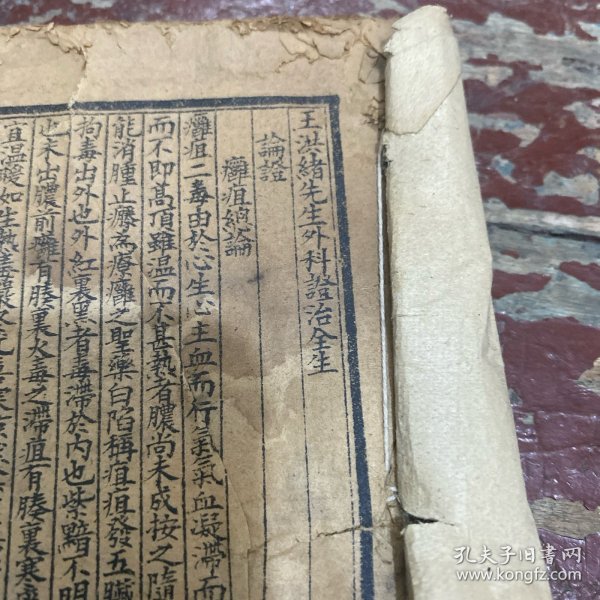 王洪緒先生外科證治全生
論證
癰疽總論
癰疽二毒由於心生心主血而行氣氣血凝滯而
而不即高頂雖温而不甚熱者膿尚未成按之隨
能消腫止㾾為療癰之聖藥白陷稱疽疽發五臟
拘毒出外也外紅裏黑者毒滯於內也紫黯不明
也未出膿前癰有膝裏火毒之滯疽有膝裏寒
直温暖如生熱
孔夫子旧書网
www.kongfz.com